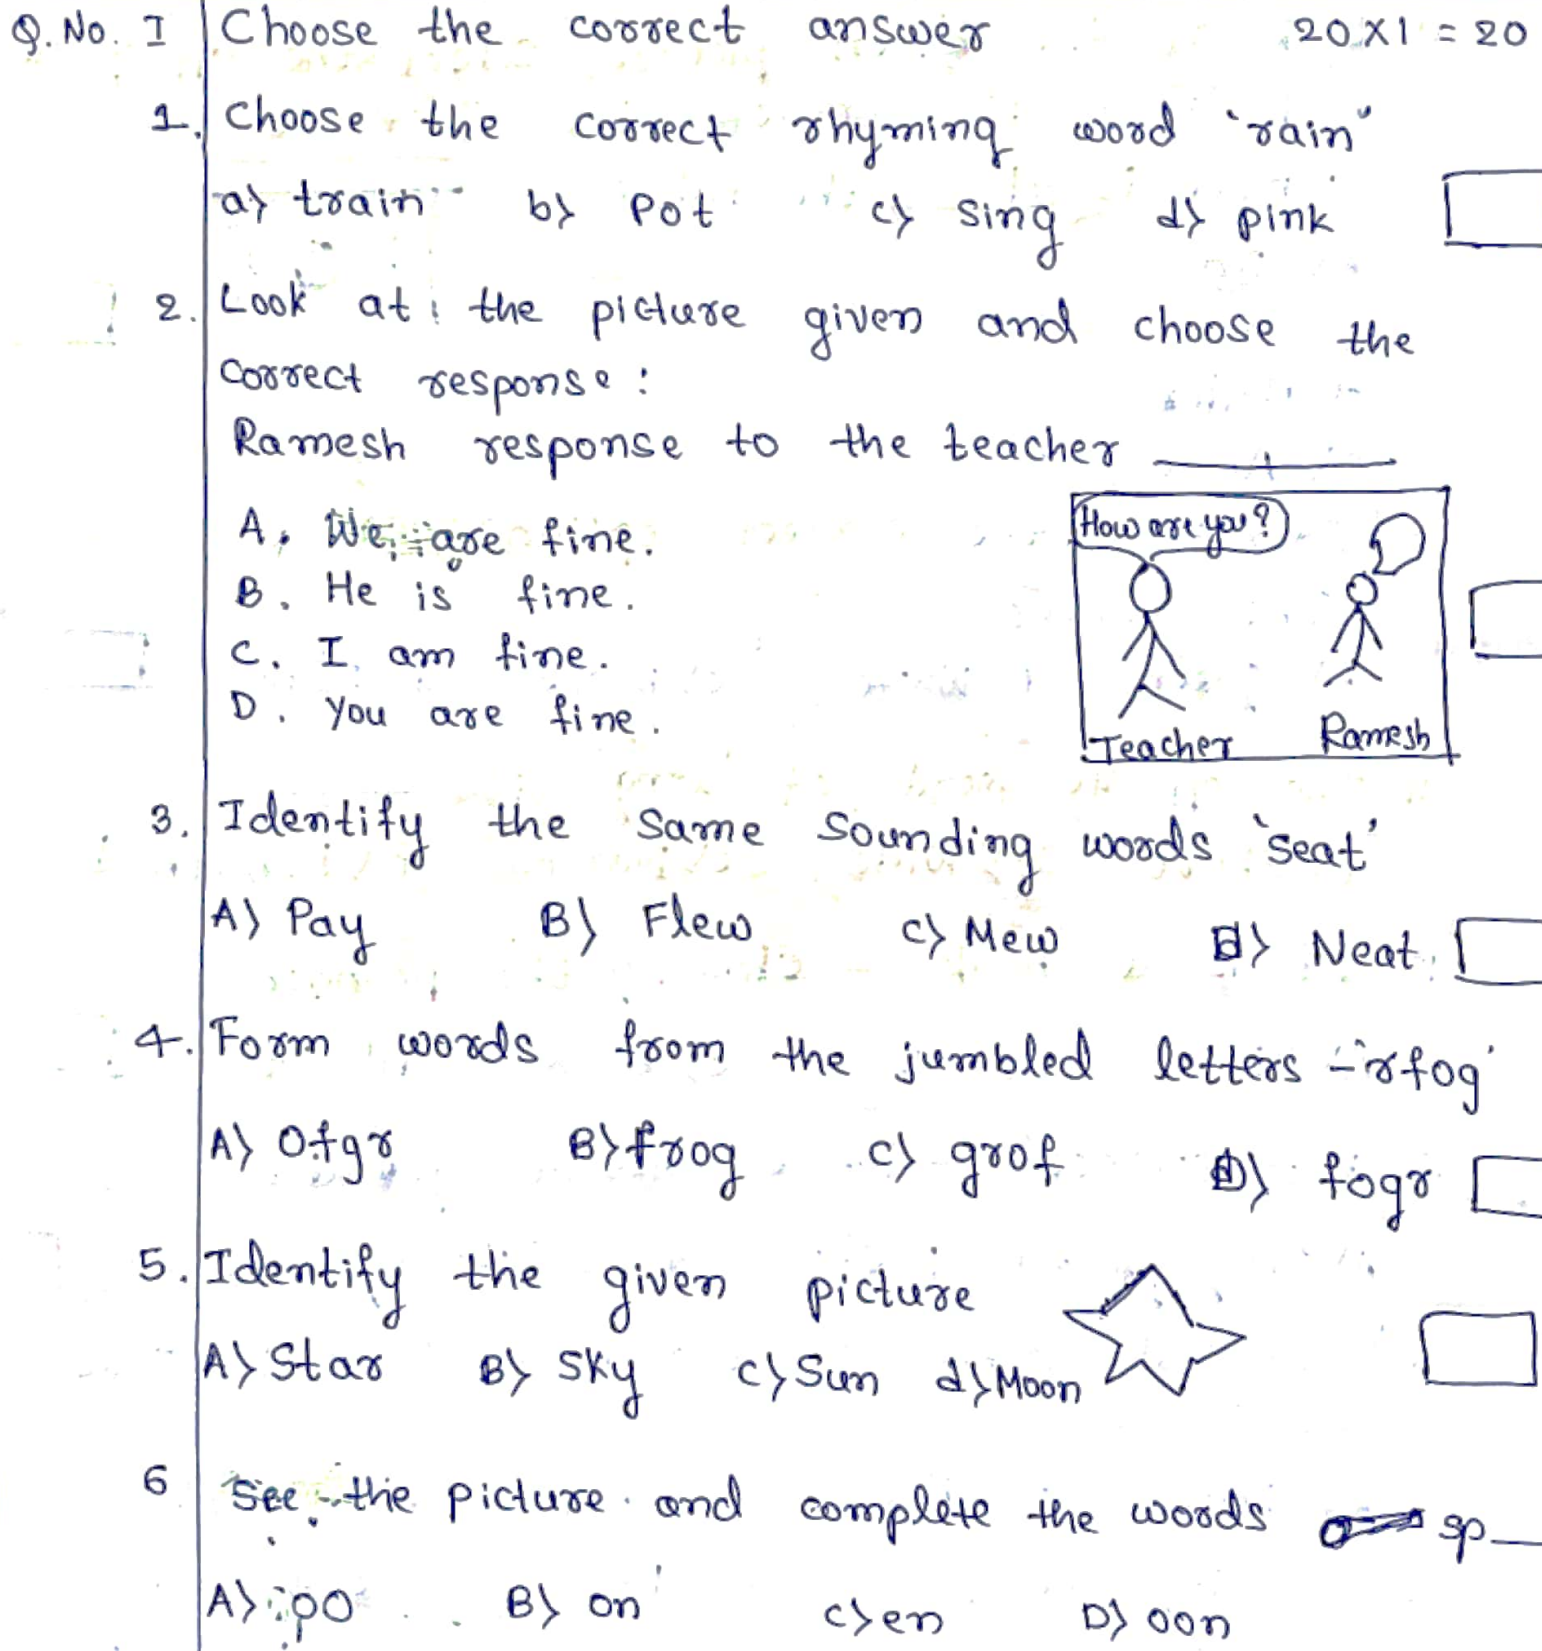 Q. No. I Choose the correct answer 20 X 1 = 20
1. Choose the correct rhyming word 'rain"
a) train b) pot c) sing d) pink
2. Look at the picture given and choose the
correct response:
Ramesh response to the teacher ________
A. We are fine.
B. He is fine.
C. I am fine.
D. You are fine.
How are you?
Teacher Ramesh
3. Identify the same sounding words 'seat'
A) Pay B) Flew C) Mew D) Neat
4. Form words from the jumbled letters - 'rfog'
A) Ofgr B) frog C) grof D) fogr
5. Identify the given picture
A) Star B) Sky C) Sun d) Moon
6 See the picture and complete the words sp__
A) po B) on C) en D) oon